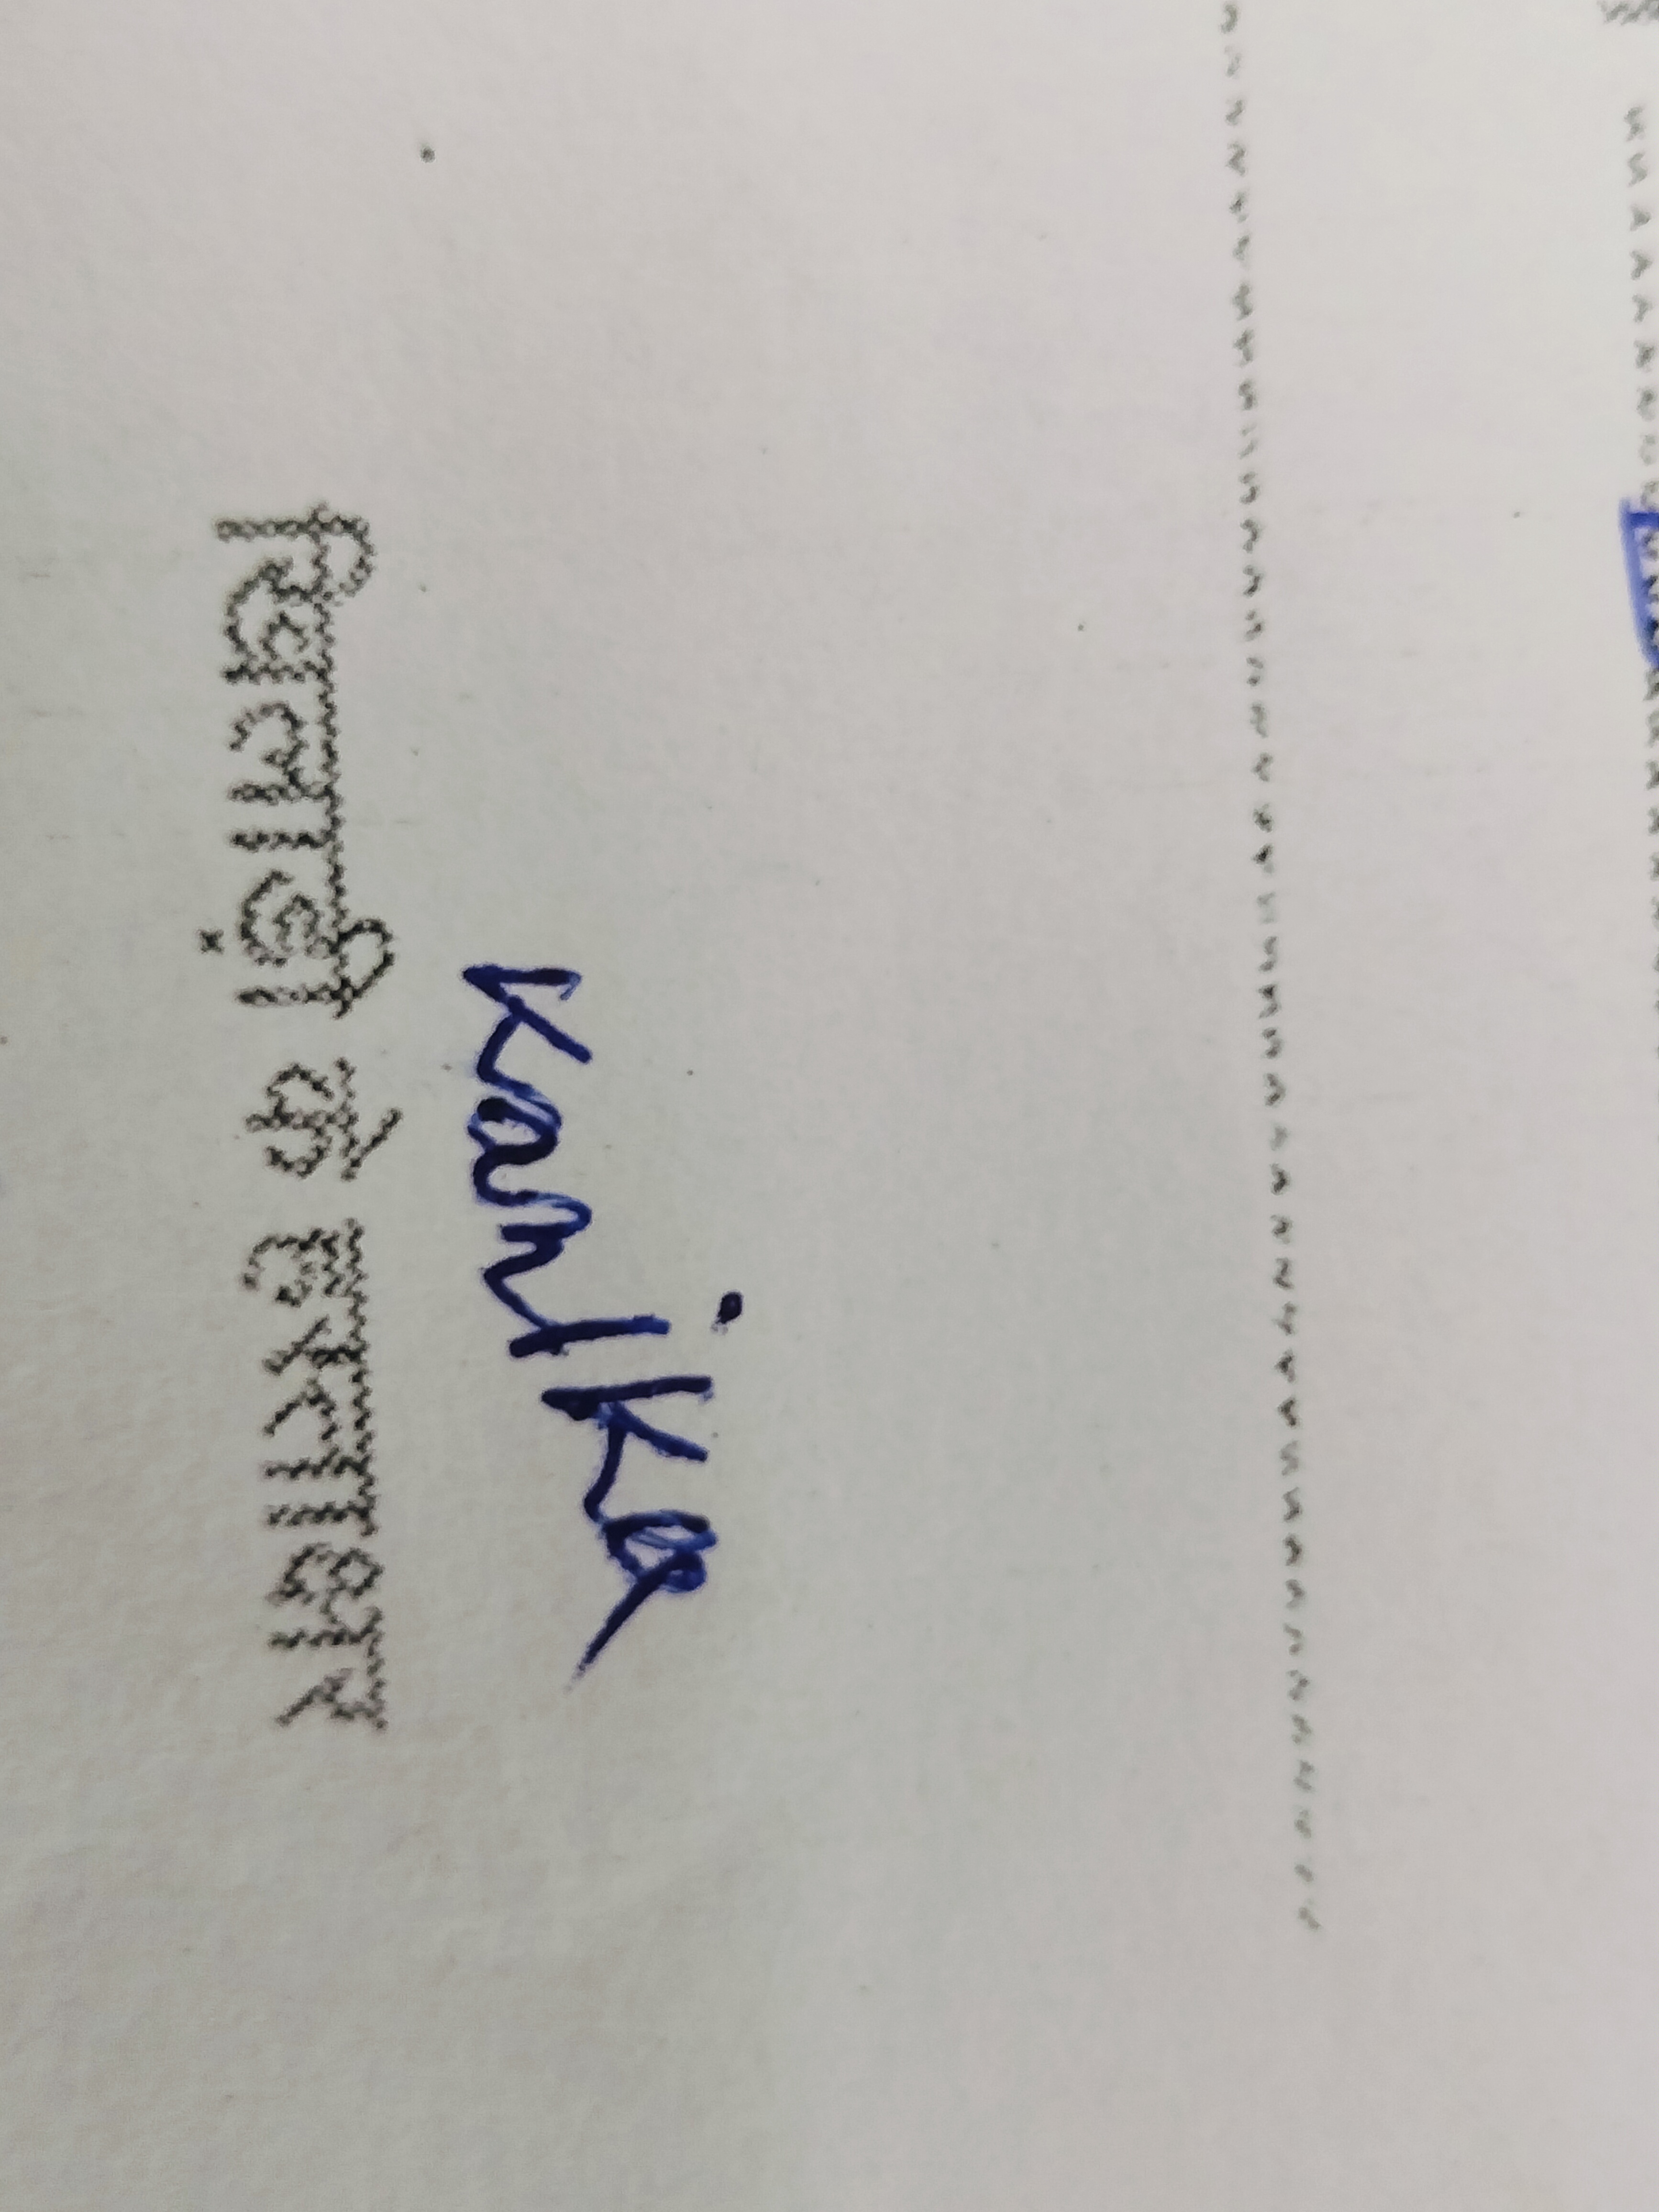 Kanika
खिलाड़ी के हस्ताक्षर